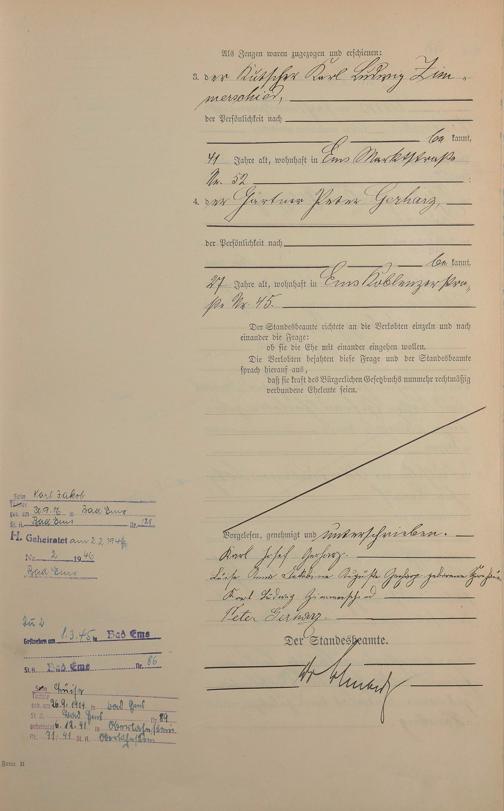 Als Zeugen waren zugezogen und erschienen:
3. der Kutscher Karl Ludwig Zim-
merschied,
der Persönlichkeit nach
be kannt,
41 Jahre alt, wohnhaft in Ems Marktstraße
Nr. 52
4. der Gärtner Peter Gerharz,
der Persönlichkeit nach
be kannt,
27 Jahre alt, wohnhaft in Ems Koblenzer stra-
ße Nr. 45.
Der Standesbeamte richtete an die Verlobten einzeln und nach
einander die Frage:
ob sie die Ehe mit einander eingehen wollen.
Die Verlobten bejahten diese Frage und der Standesbeamte
sprach hierauf aus,
daß sie kraft des Bürgerlichen Gesetzbuchs nunmehr rechtmäßig
verbundene Eheleute seien.
Vorgelesen, genehmigt und unterschrieben.
Karl Josef Gerharz
Luise Anna Auguste Gerharz geborene
Karl Ludwig Zimmerschied
Peter Gerharz
Der Standesbeamte.
Sohn Karl Jakob
geb. am in Bad Ems
St. A. Bad Ems Nr.
II. Geheiratet am 2.2.1946
Nr. 2 1946
Bad Ems
Zu 2
Gestorben am 1.3.45 in Bad Ems
St. A. Bad Ems Nr. 86
Luise
geb. am 26.9.1914 in Bad Ems
St. A. Bad Ems Nr. 89
6.12.41 in Oberlahnstein
Nr. 71/41 St. A. Oberlahnstein
Form